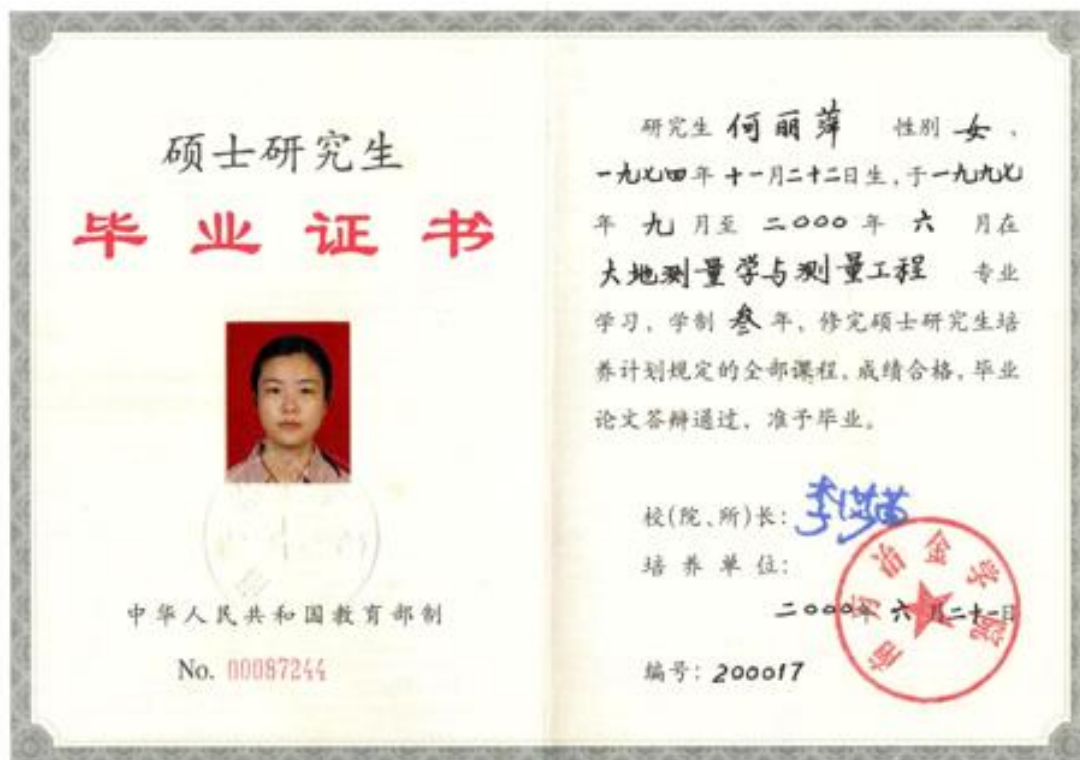 硕士研究生
毕业证书
中华人民共和国教育部制
No. 00087244
研究生 何丽萍 性别 女、
一九七四年十一月二十二日生,于一九九七
年 九 月至 二〇〇〇 年 六 月在
大地测量学与测量工程 专业
学习、学制 叁 年、修完硕士研究生培
养计划规定的全部课程、成绩合格、毕业
论文答辩通过、准予毕业。
校(院、所)长:
培养单位:
南方冶金学院
二〇〇〇年 六 月二十一日
编号: 200017